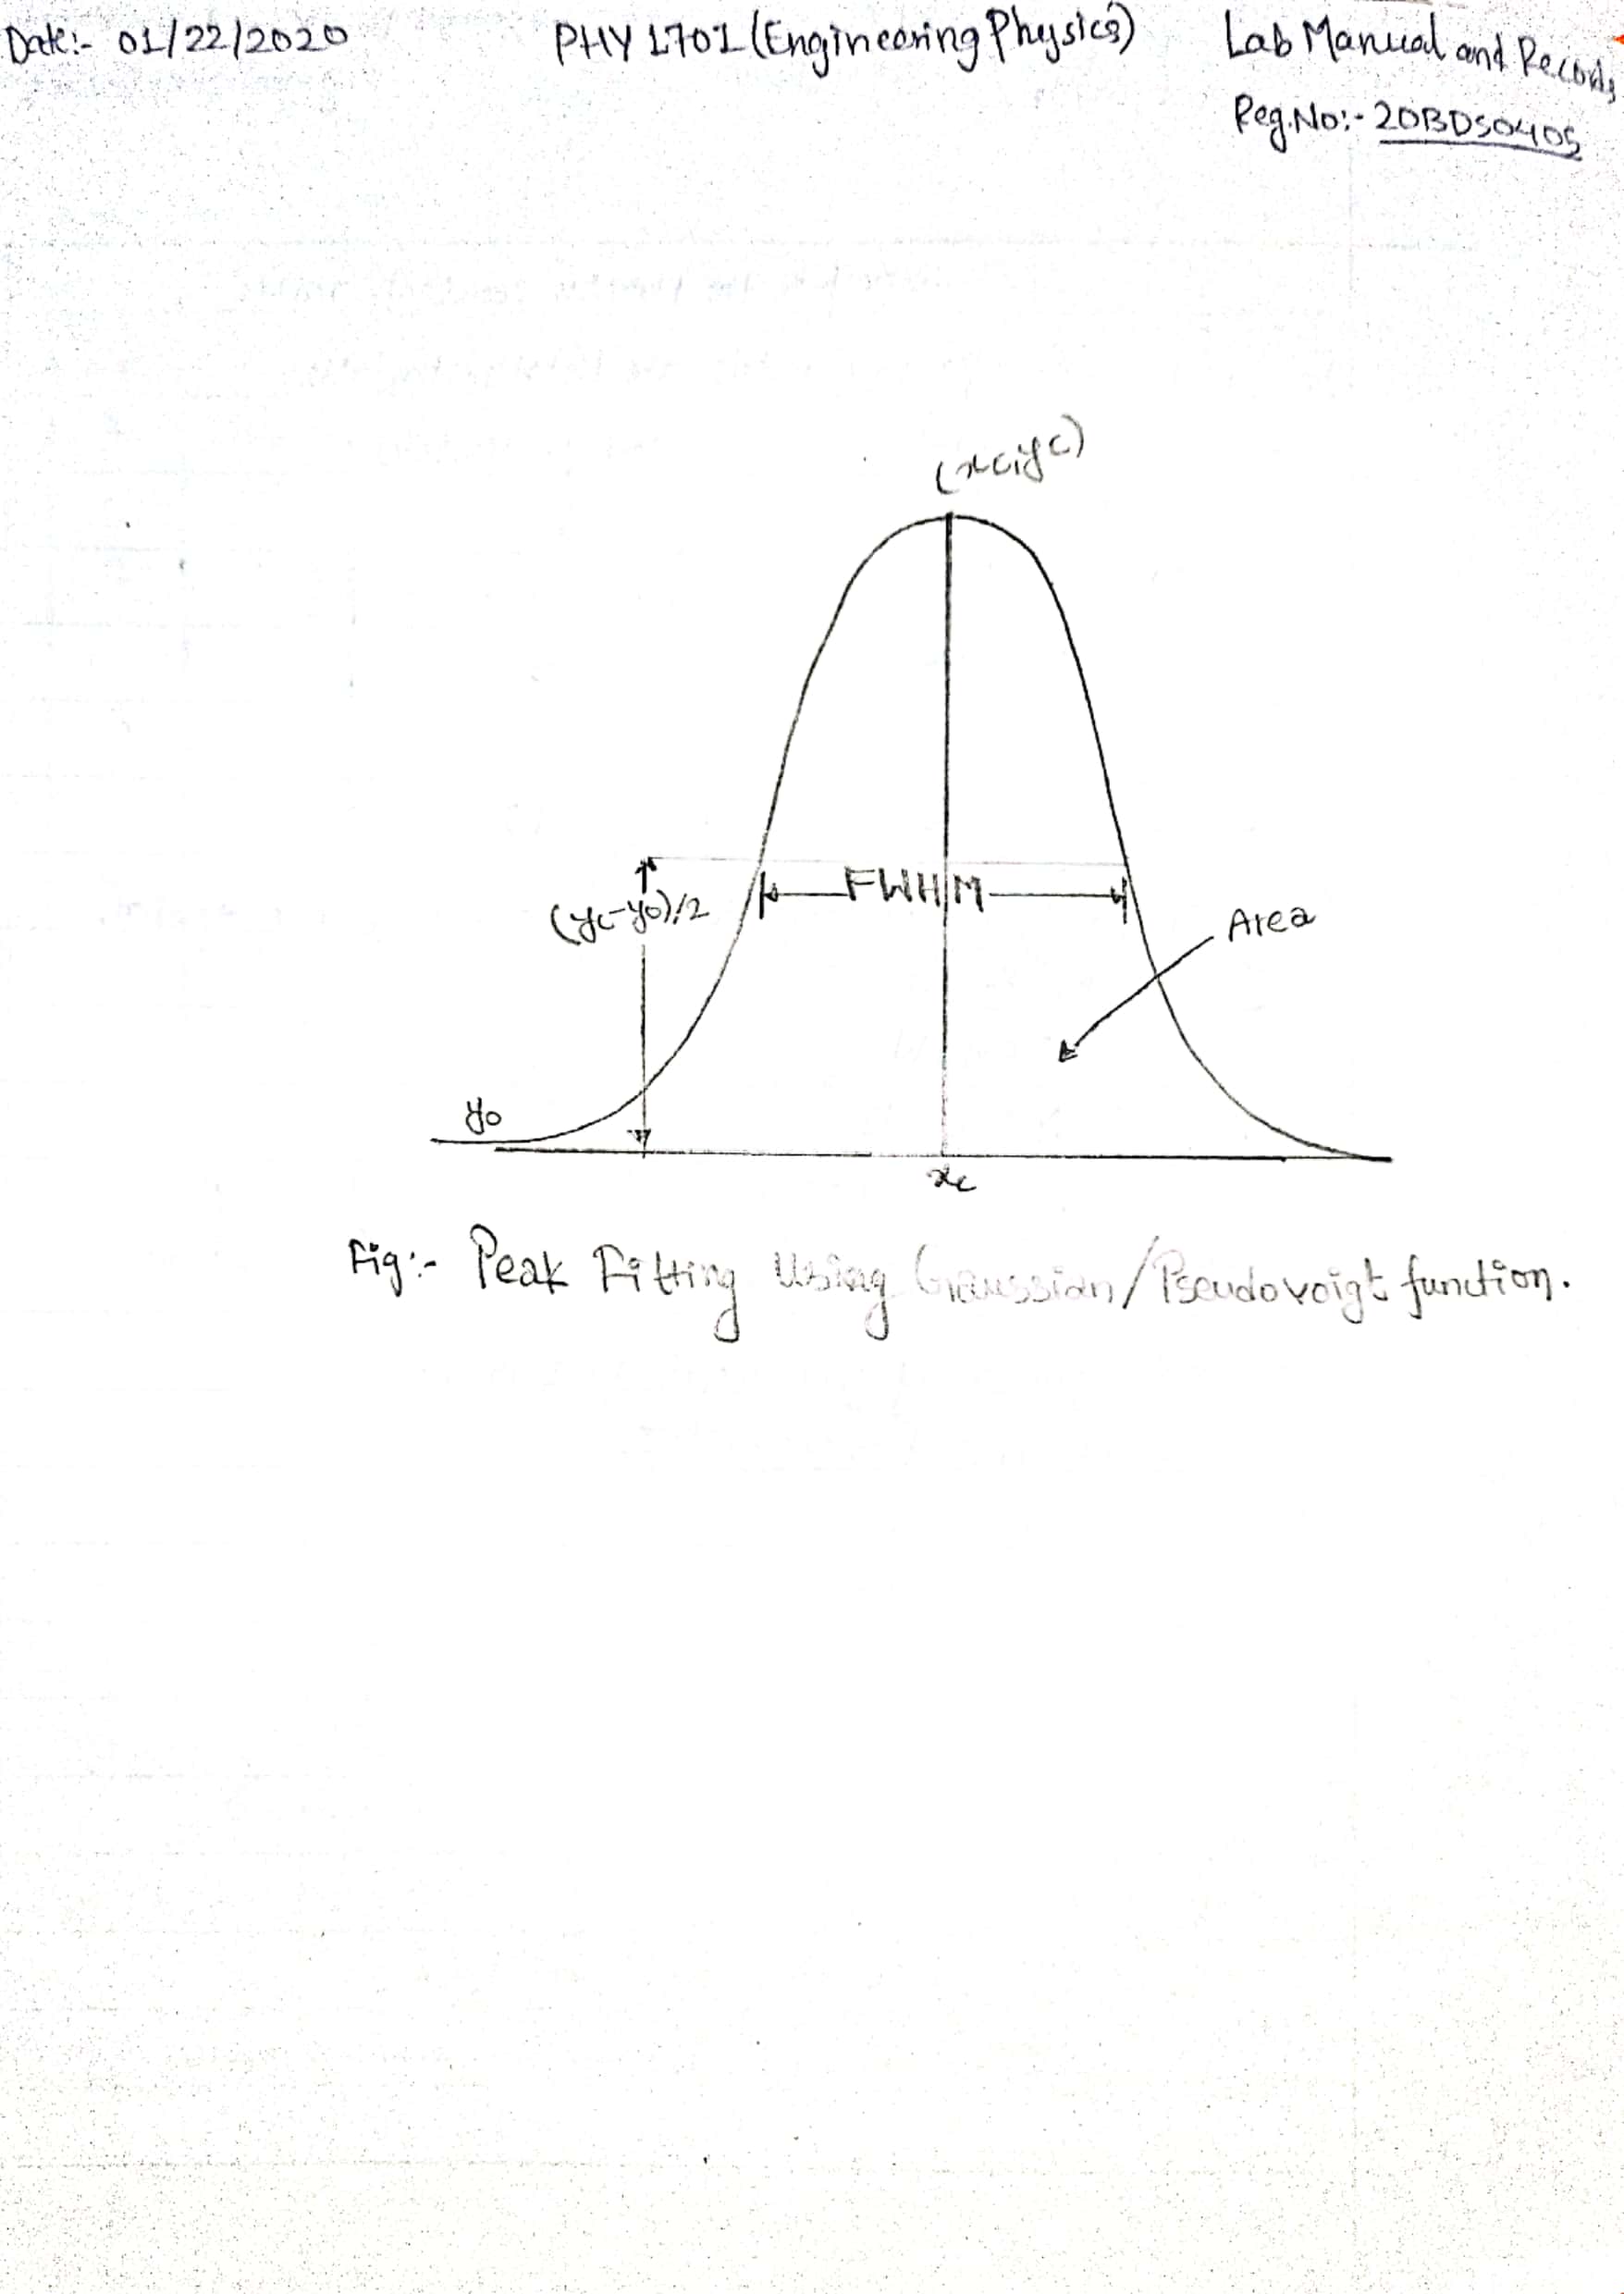 Date:- 01/22/2020 PHY 1701 (Engineering Physics) Lab Manual and Records
Reg.No:- 20BDS0405
(xc,yc)
FWHM
(yc-y0)/2
Area
y0
xc
Fig:- Peak Fitting Using Gaussian/Pseudovoigt function.